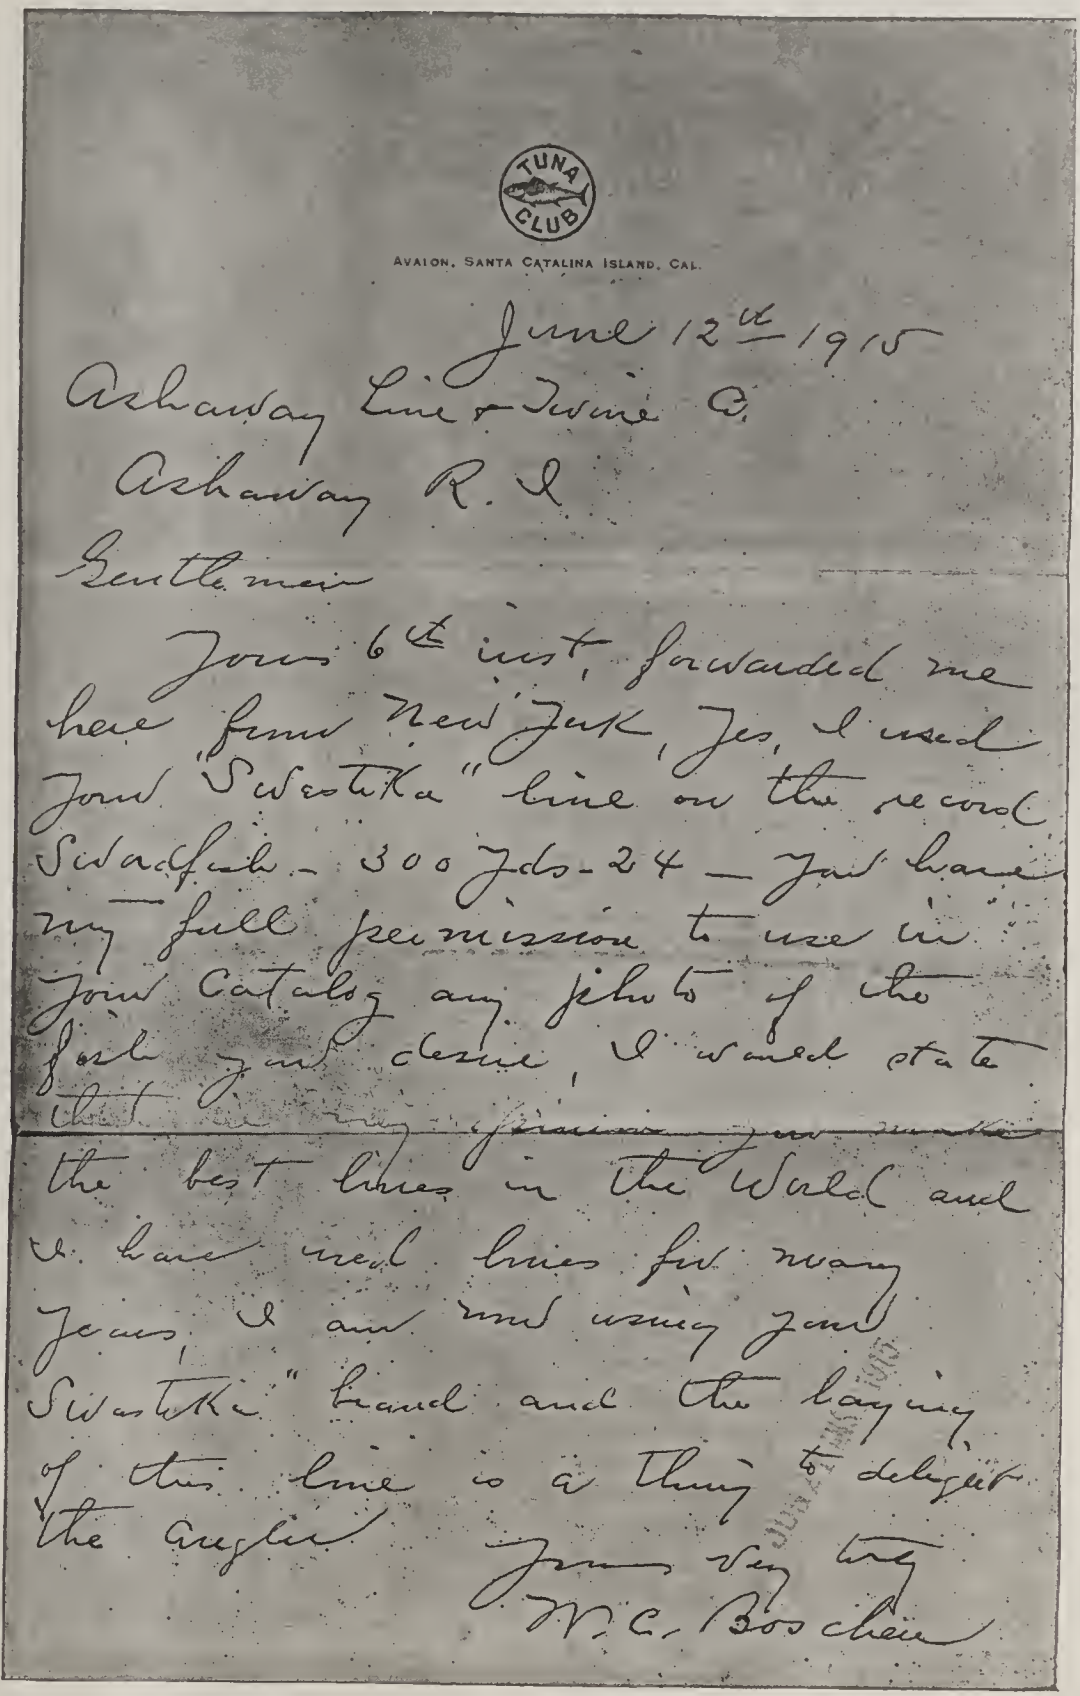 TUNA
CLUB
AVALON, SANTA CATALINA ISLAND, CAL.
June 12th 1915
Ashaway Line & Twine Co.
Ashaway R. I
Gentlemen
Yours 6th inst, forwarded me
here from New York, Yes, I used
your "Swastika" line on the record
Swordfish - 300 yds - 24 - You have
my full permission to use in
your Catalog any photo of the
fish you desire, I would state
that in my opinion you make
the best lines in the World and
I have used lines for many
years, I am now using your
Swastika" brand and the laying
of this line is a thing to delight
the angler
JUN 21 1915
Yours very truly
W. C. Boschen